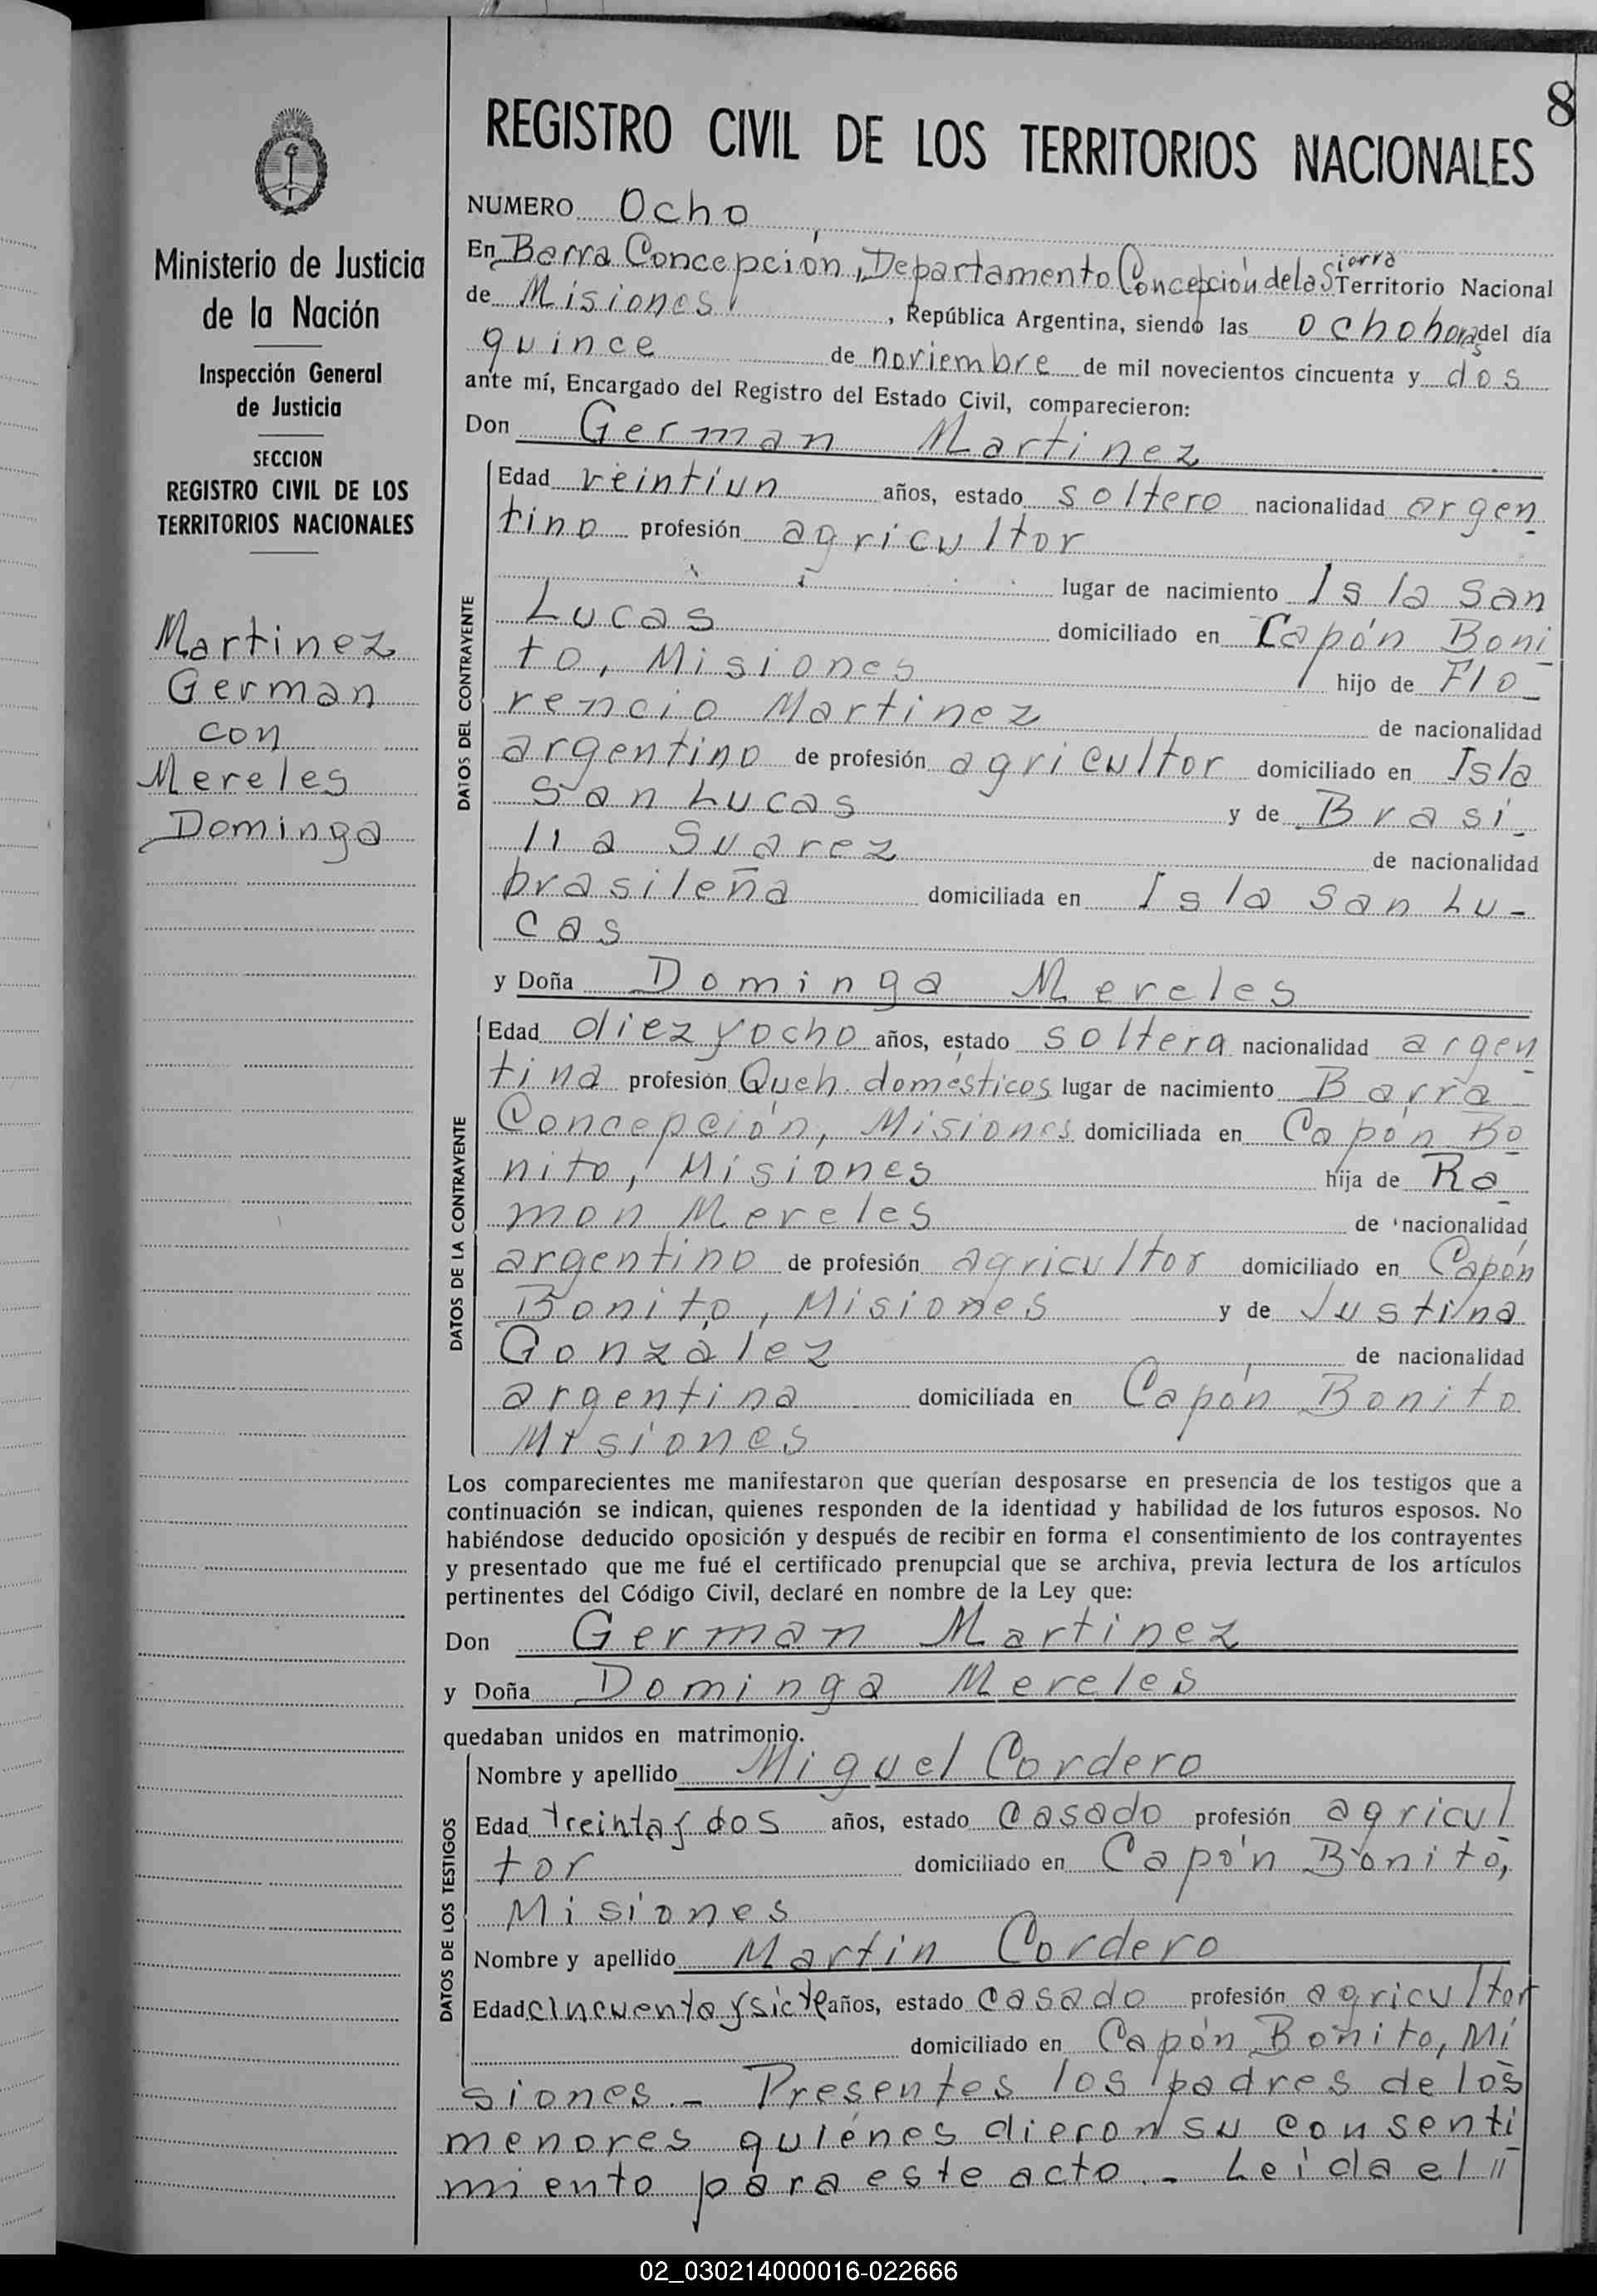 8
REGISTRO CIVIL DE LOS TERRITORIOS NACIONALES
Ministerio de Justicia
de la Nación
Inspección General
de Justicia
SECCION
REGISTRO CIVIL DE LOS
TERRITORIOS NACIONALES
Martinez
German
con
Mereles
Dominga
NUMERO Ocho
En Barra Concepción, Departamento Concepción de la Sierra Territorio Nacional
de Misiones, República Argentina, siendo las ocho horas del día
quince de noviembre de mil novecientos cincuenta y dos
ante mí, Encargado del Registro del Estado Civil, comparecieron:
Don German Martinez
DATOS DEL CONTRAYENTE
Edad veintiun años, estado soltero nacionalidad argen
tino profesión agricultor
lugar de nacimiento Isla San
Lucas domiciliado en Capón Boni
to, Misiones hijo de Flo
rencio Martinez de nacionalidad
argentino de profesión agricultor domiciliado en Isla
San Lucas y de Brasi
lia Suarez de nacionalidad
brasileña domiciliada en Isla San Lu-
cas
y Doña Dominga Mereles
DATOS DE LA CONTRAYENTE
Edad diez y ocho años, estado soltera nacionalidad argen
tina profesión Queh. domésticos lugar de nacimiento Barra
Concepción, Misiones domiciliada en Capón Bo
nito, Misiones hija de Ra
mon Mereles de nacionalidad
argentino de profesión agricultor domiciliado en Capón
Bonito, Misiones y de Justina
González de nacionalidad
argentina domiciliada en Capón Bonito
Misiones
Los comparecientes me manifestaron que querían desposarse en presencia de los testigos que a
continuación se indican, quienes responden de la identidad y habilidad de los futuros esposos. No
habiéndose deducido oposición y después de recibir en forma el consentimiento de los contrayentes
y presentado que me fué el certificado prenupcial que se archiva, previa lectura de los artículos
pertinentes del Código Civil, declaré en nombre de la Ley que:
Don German Martinez
y Doña Dominga Mereles
quedaban unidos en matrimonio.
DATOS DE LOS TESTIGOS
Nombre y apellido Miguel Cordero
Edad treinta y dos años, estado casado profesión agricul
tor domiciliado en Capón Bonito,
Misiones
Nombre y apellido Martin Cordero
Edad cincuenta y siete años, estado casado profesión agricultor
domiciliado en Capón Bonito, Mi
siones.- Presentes los padres de los
menores quiénes dieron su consenti
miento para este acto.- Leída el //
02_030214000016-022666